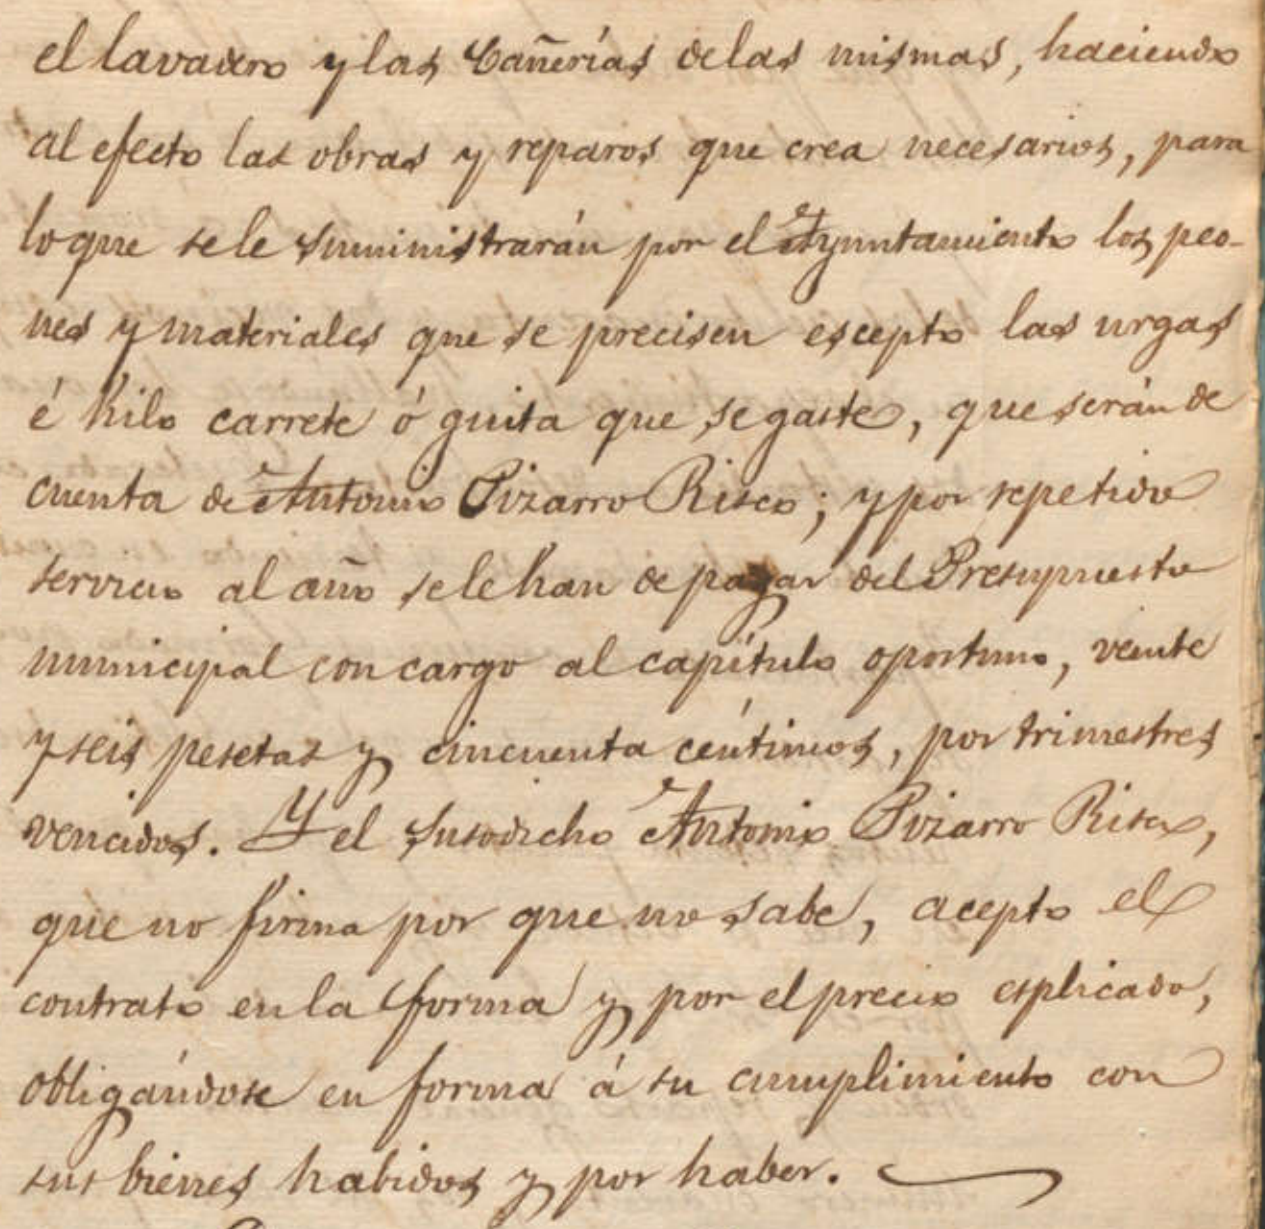 el lavadero y las Cañerías de las mismas, haciendo
al efecto las obras y reparos que crea necesarios, para
lo que se le suministrarán por el Ayuntamiento los peo-
nes y materiales que se precisen escepto las urgas
é hilo carrete ó guita que se gaste, que serán de
cuenta de Antonio Pizarro Risco; y por repetido
servicio al año se le han de pagar del Presupuesto
municipal con cargo al capítulo oportuno, veinte
y seis pesetas y cincuenta céntimos, por trimestres
vencidos. Y el susodicho Antonio Pizarro Risco,
que no firma por que no sabe, acepto el
contrato en la forma y por el precio esplicado,
obligándose en forma á su cumplimiento con
sus bienes habidos y por haber.